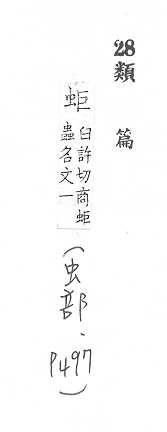 28類 篇
蚷 臼許切商蚷
蟲名文一
(虫部、P497)